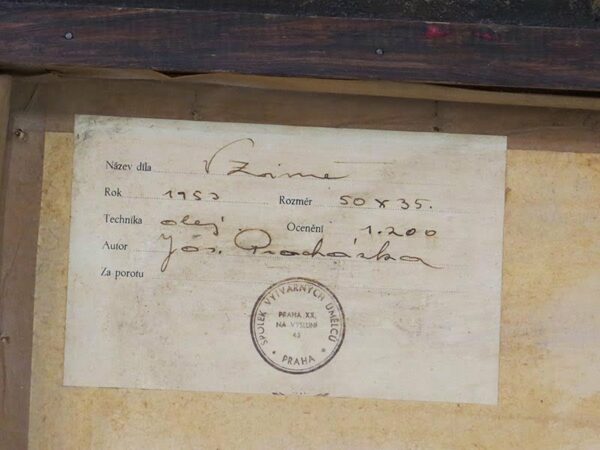 Název díla V Zimě
Rok 1953 Rozměr 50 x 35.
Technika olej Ocenění 1.200
Autor Jos. Procházka
Za porotu
SPOLEK VÝTVARNÝCH UMĚLCŮ
PRAHA XX,
NA VÝSLUNÍ
43
• PRAHA •